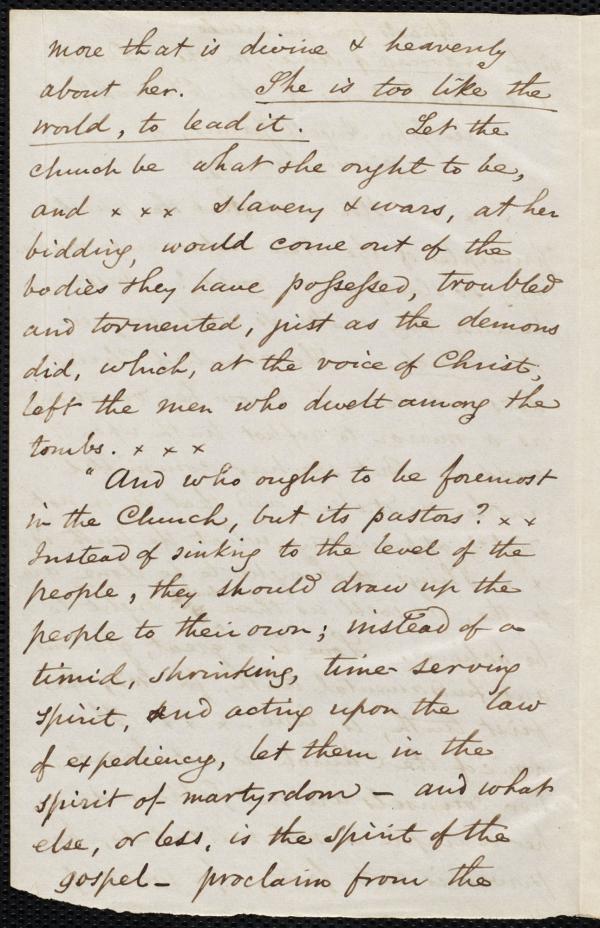 more that is divine & heavenly
about her. She is too like the
world, to lead it. Let the
church be what she ought to be,
and x x x slavery & wars, at her
bidding, would come out of the
bodies they have poſseſsed, troubled
and tormented, just as the demons
did, which, at the voice of Christ,
left the men who dwelt among the
tombs. x x x
"And who ought to be foremost
in the Church, but its pastors? x x
Instead of sinking to the level of the
people, they should draw up the
people to their own; instead of a
timid, shrinking, time-serving
spirit, and acting upon the law
of expediency, let them in the
spirit of martyrdom - and what
else, or less, is the spirit of the
gospel - proclaim from the